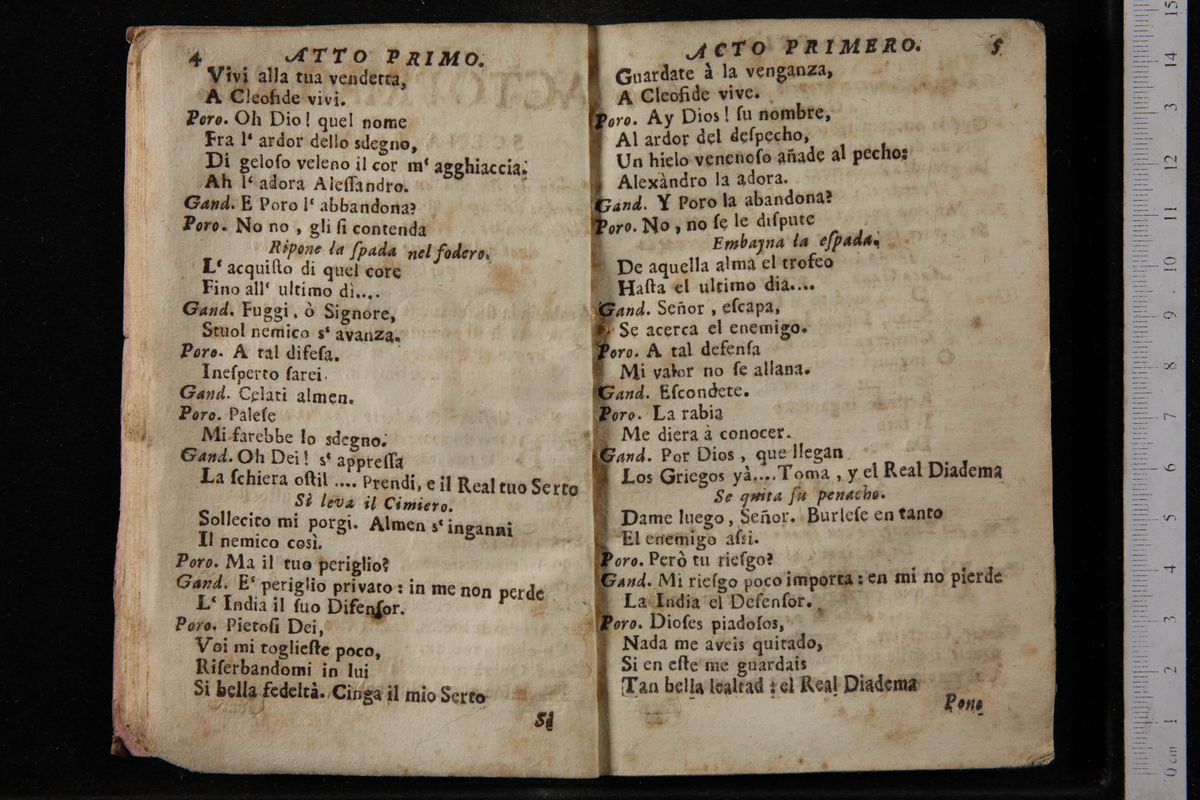 4 ATTO PRIMO.
Vivi alla tua vendetta,
A Cleofide vivi.
Poro. Oh Dio! quel nome
Fra l‘ ardor dello sdegno,
Di geloſo veleno il cor m‘ agghiaccia.
Ah l‘ adora Aleſſandro.
Gand. E Poro l‘ abbandona?
Poro. No no, gli ſi contenda
Ripone la ſpada nel fodero.
L‘ acquiſto di quel core
Fino all‘ ultimo dì....
Gand. Fuggi, ò Signore,
Stuol nemico s‘ avanza.
Poro. A tal difeſa.
Ineſperto ſarei.
Gand. Celati almen.
Poro. Paleſe
Mi ſarebbe lo sdegno.
Gand. Oh Dei! s‘ appreſſa
La ſchiera oſtil .... Prendi, e il Real tuo Serto
Si leva il Cimiero.
Sollecito mi porgi. Almen s‘ inganni
Il nemico così.
Poro. Ma il tuo periglio?
Gand. E‘ periglio privato: in me non perde
L‘ India il ſuo Difenſor.
Poro. Pietoſi Dei,
Voi mi toglieſte poco,
Riſerbandomi in lui
Si bella fedeltà. Cinga il mio Serto
Si
ACTO PRIMERO. 5
Guardate à la venganza,
A Cleofide vive.
Poro. Ay Dios! ſu nombre,
Al ardor del deſpecho,
Un hielo venenoſo añade al pecho:
Alexàndro la adora.
Gand. Y Poro la abandona?
Poro. No, no ſe le diſpute
Embayna la eſpada.
De aquella alma el trofeo
Haſta el ultimo dia....
Gand. Señor, eſcapa,
Se acerca el enemigo.
Poro. A tal defenſa
Mi valor no ſe allana.
Gand. Eſcondete.
Poro. La rabia
Me diera à conocer.
Gand. Por Dios, que llegan
Los Griegos yà....Toma, y el Real Diadema
Se quita ſu penacho.
Dame luego, Señor. Burleſe en tanto
El enemigo aſsi.
Poro. Però tu rieſgo?
Gand. Mi rieſgo poco importa: en mi no pierde
La India el Defenſor.
Poro. Dioſes piadoſos,
Nada me aveis quitado,
Si en eſte me guardais
Tan bella lealtad: el Real Diadema
Pone
15
14
3
12
11
10
9
8
7
6
5
4
3
2
1
0 cm